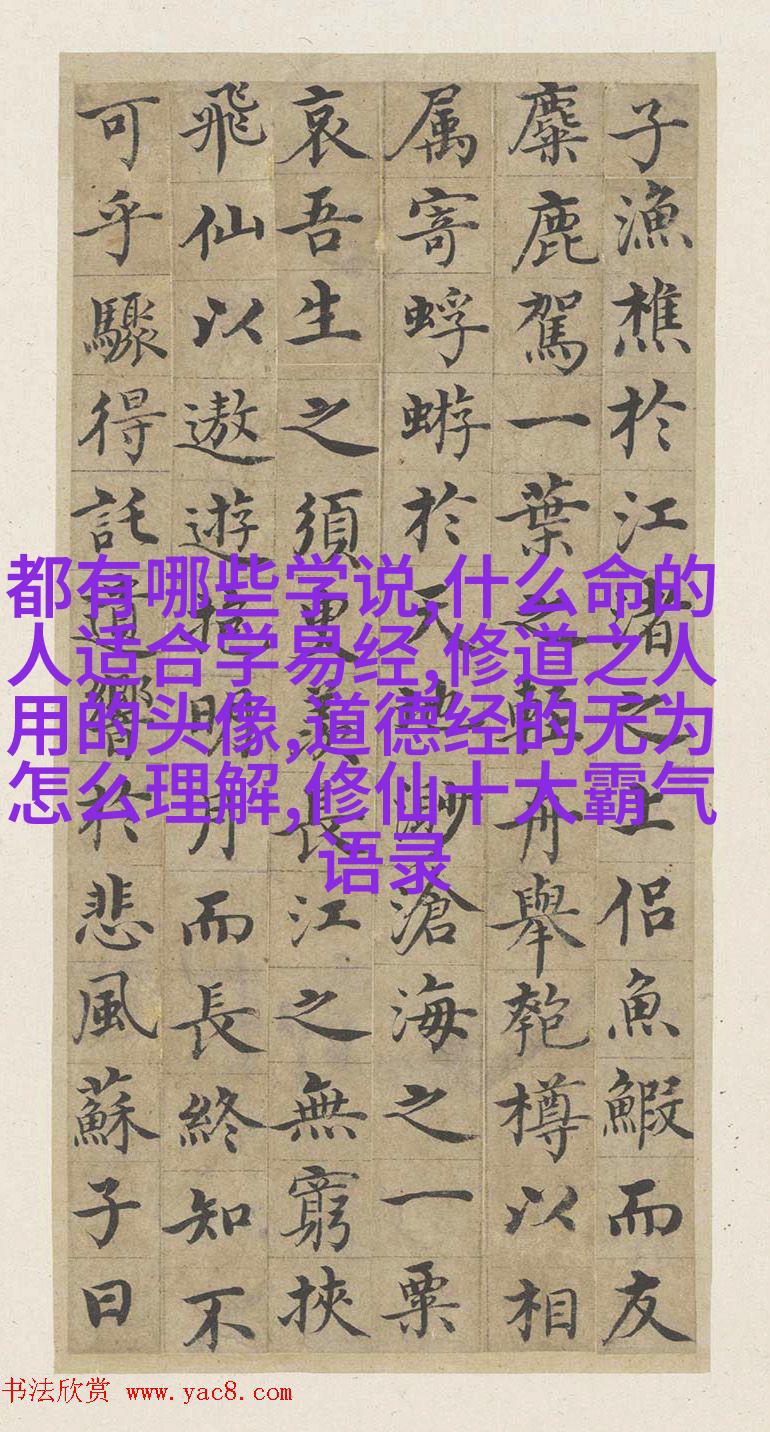 子漁樵於江渚之上侶魚鰕而友
麋鹿駕一葉之輕舟舉匏樽以相
属寄蜉蝣於天地渺滄海之一粟
哀吾生之須臾羨長江之無窮挾
飛仙以遨遊抱明月而長終知不
可乎驟得託遺響於悲風蘇子曰
都有哪些学说,什么命的
人适合学易经,修道之人
用的头像,道德经的无为
怎么理解,修仙十大霸气
语录
书法欣赏 www.yac8.com